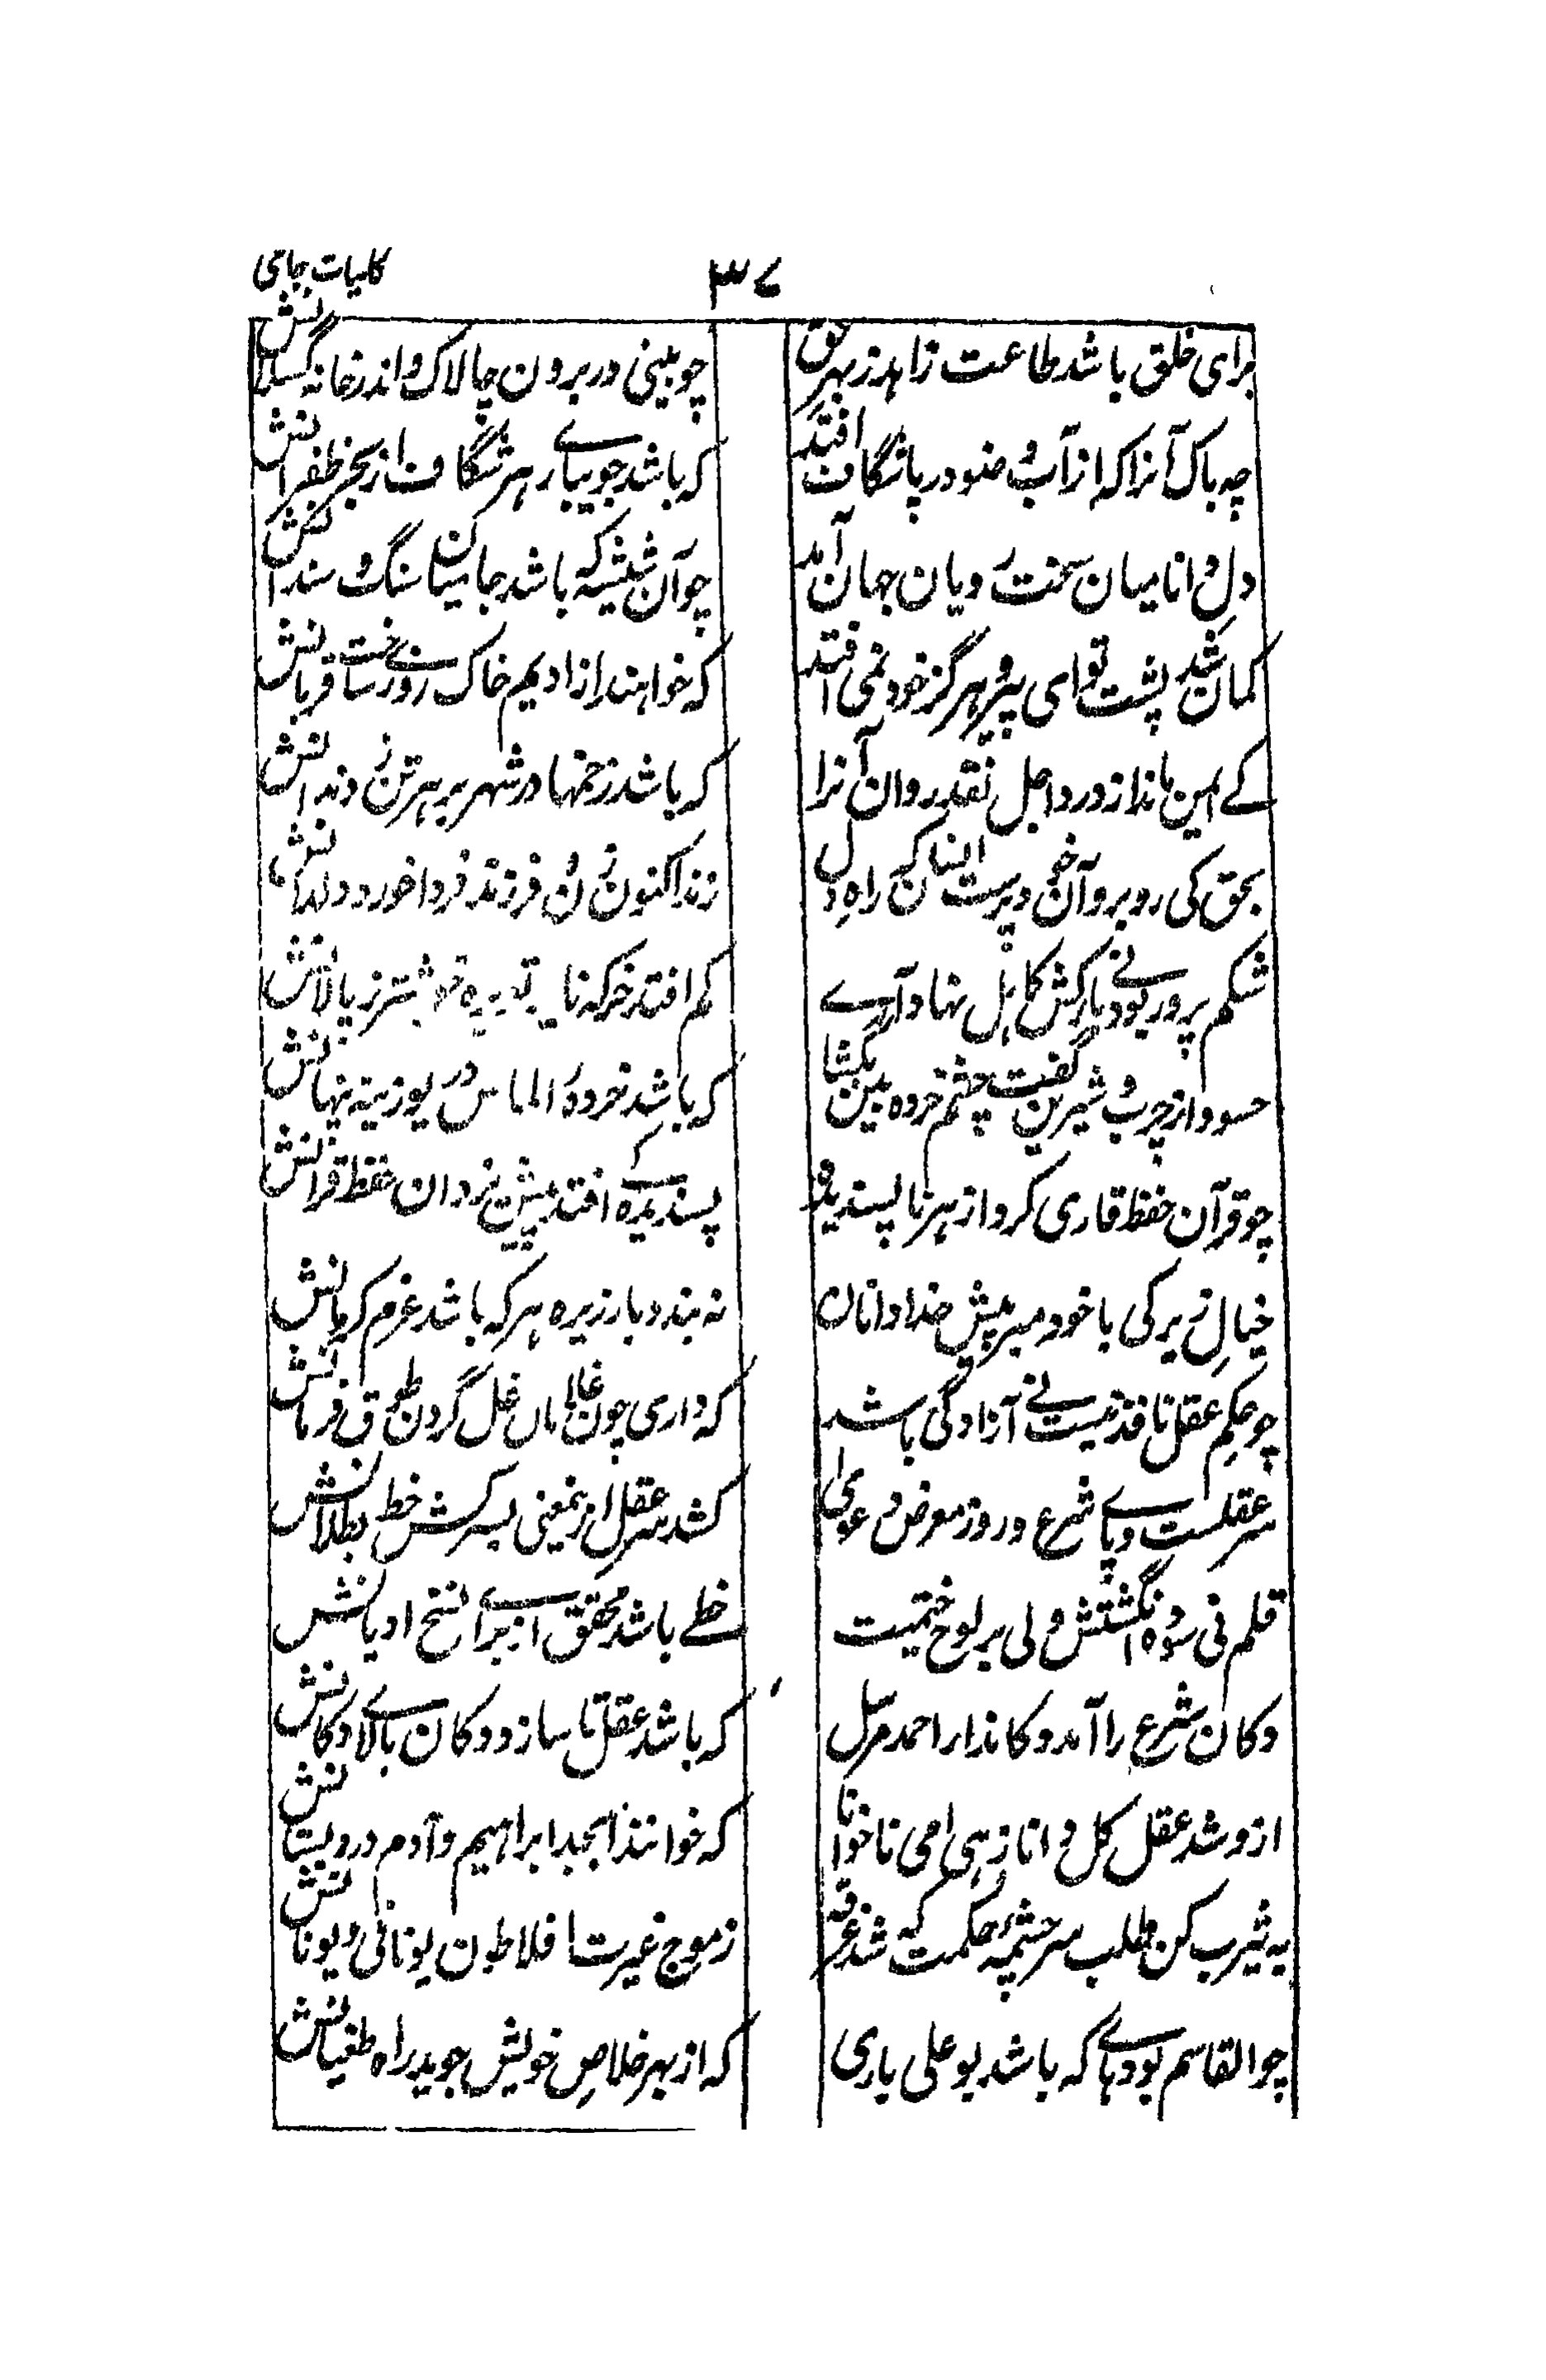 ۳۷
کلیات جامی
برای خلق باشد طاعت زاهد نہ بہر حق
چو بینی در برون چالاک و اندر خانہ کسلانش
چہ باک آنرا کہ از آب وضو در پا شگاف افتد
کہ باشد جویبارے ہر شگاف از بحر ظفرانش
دل دانا میان سخت رویان جہان آمد
چو آن شیشہ کہ باشد جا میان سنگ و سندانش
کمان شد پشت تو ای پیر و ہرگز خود نمی افتد
کہ خواہند از ادیم خاک روزے ساخت قربانش
کے ایمن ماند از درد اجل نقد روان آنرا
کہ باشد رخنہا در شہر بر ہر تن ز دندانش
بحق کی رو برو آن خود پرست
زند اکنون زن و فرزند فردا خور و ولدانش
شکم پرور بود نے بارکش کاہل نہاد آرے
کم افتد خر کہ ناید توبرہ خوشتر ز پالانش
حسود از چرب و شیرین گفت چشم خردہ بین بگشا
کہ باشد خردہ الماس در لوزینہ پنہانش
چو قرآن حفظ قاری کرد از ہر ناپسندیدہ
پسندیدہ کے افتد پیش یزدان حفظ قرآنش
خیال زیرکی با خود مبر پیش خدا دانان
نہ بندد بار زیرہ ہر کہ باشد عزم کرمانش
چو حکم عقل نافذ نیست نے آزادگی باشد
کہ داری چون غلامان غل گردن طوق فرمانش
سر عقلست و پاے شرع در روز معرض دعوی
کشد سر عقل از ینمعنی بسرکش خط بطلانش
قلم نی سودہ انگشتش ولی بر لوح ختمیت
خطے باشد محقق از براے نسخ ادیانش
دکان شرع را آمد دکاندار احمد مرسل
کہ باشد عقل تا سازد دکان بالاے دکانش
ازو شد عقل کل دانا زہی امی ناخوانا
کہ خوانند ابجد ابراہیم و آدم در دبستانش
بہ یثرب کن طلب سرچشمہ حکمت کہ شد غرقہ
ز موج غیرتش افلاطون یونانی و یونانش
چو القاسم بود ہادے کہ باشد بو علی باری
کہ از بہر خلاص خویش جوید راہ طغیانش